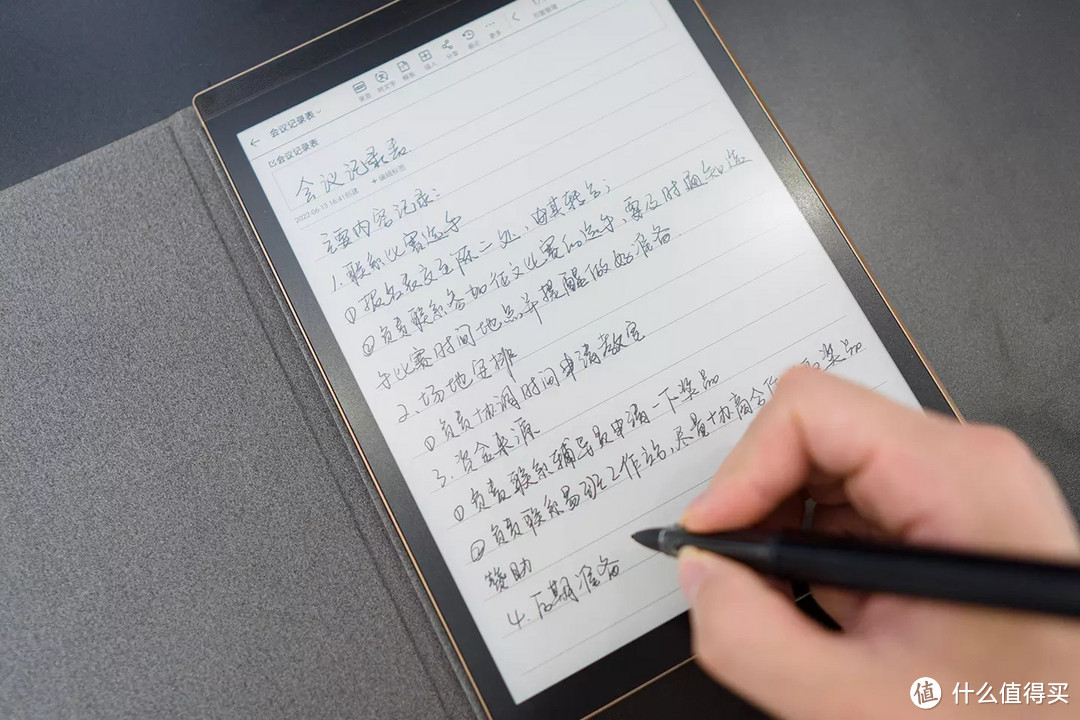 会议记录表
录音 转文字 模板 插入 分享 最近 更多 创建管理
会议记录表
会议记录表
2022-06-13 16:41创建 + 编辑标签
主要内容记录：
1. 联系比赛选手
① 报名表交至陈二处，由其转生；
② 负责联系参加征文比赛的选手，要及时通知选
手比赛时间地点并提醒做好准备
2. 场地安排
① 负责协调时间申请教室
3. 资金来源
① 负责联系辅导员申请一下奖品
② 负责联系易班工作站，尽量协商合作 奖品
赞助
4. 后期准备
值 什么值得买